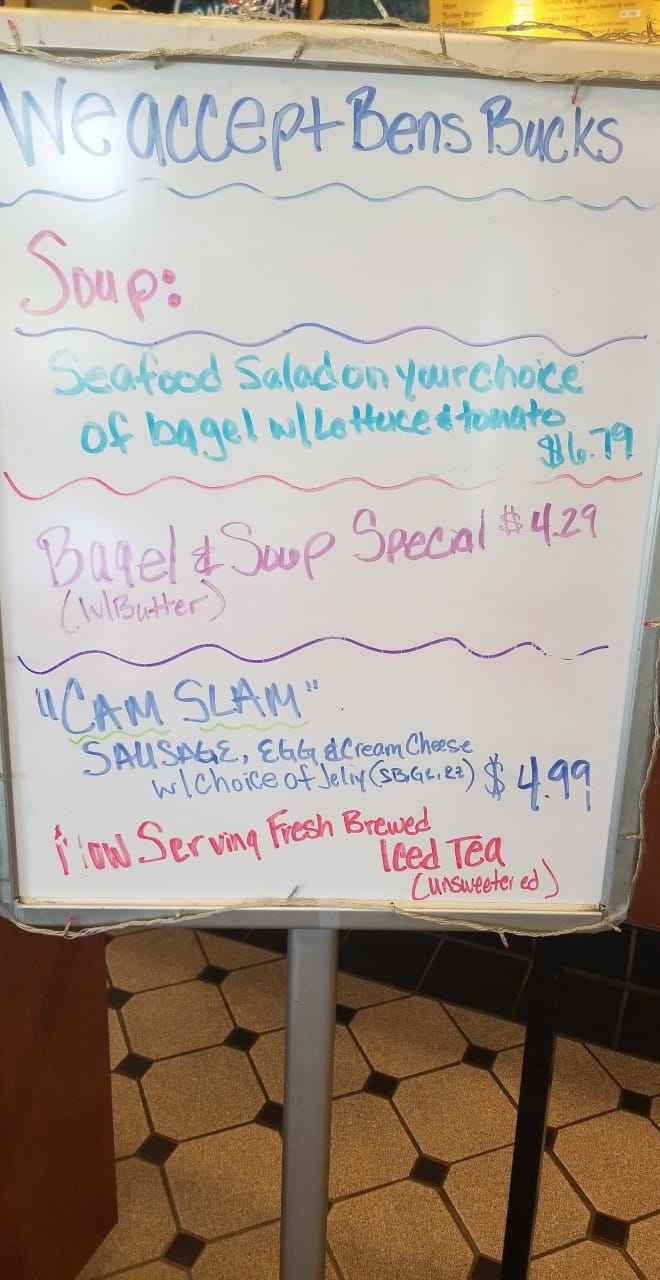 Ham
Turkey Breast
Roast Beef
We accept Bens Bucks
Soup:
Seafood Salad on your choice
of bagel w/Lettuce & tomato
$6.79
Bagel & Soup Special $4.29
(w/Butter)
"CAM SLAM"
SAUSAGE, EGG & Cream Cheese
w/choice of Jelly (SB, GL, RZ) $4.99
Now Serving Fresh Brewed
Iced Tea
(unsweetened)